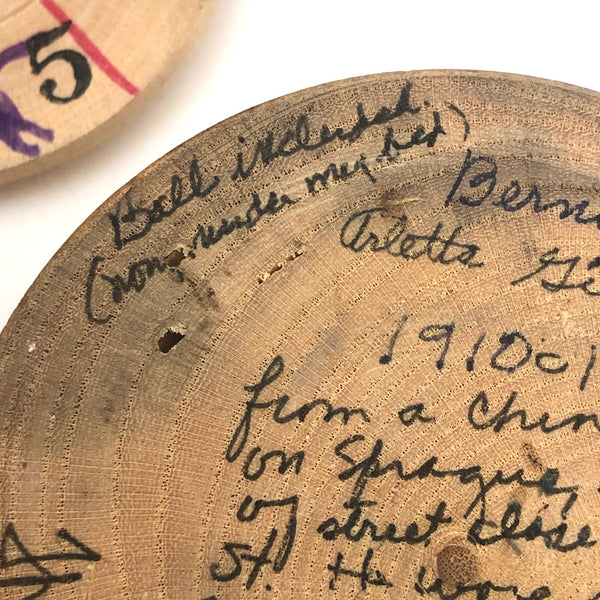 5
Bell included.
(now under my bed)
Berni
Arletta Gi
1910-1
from a Chin
on Sprague,
of street close
St. He wore